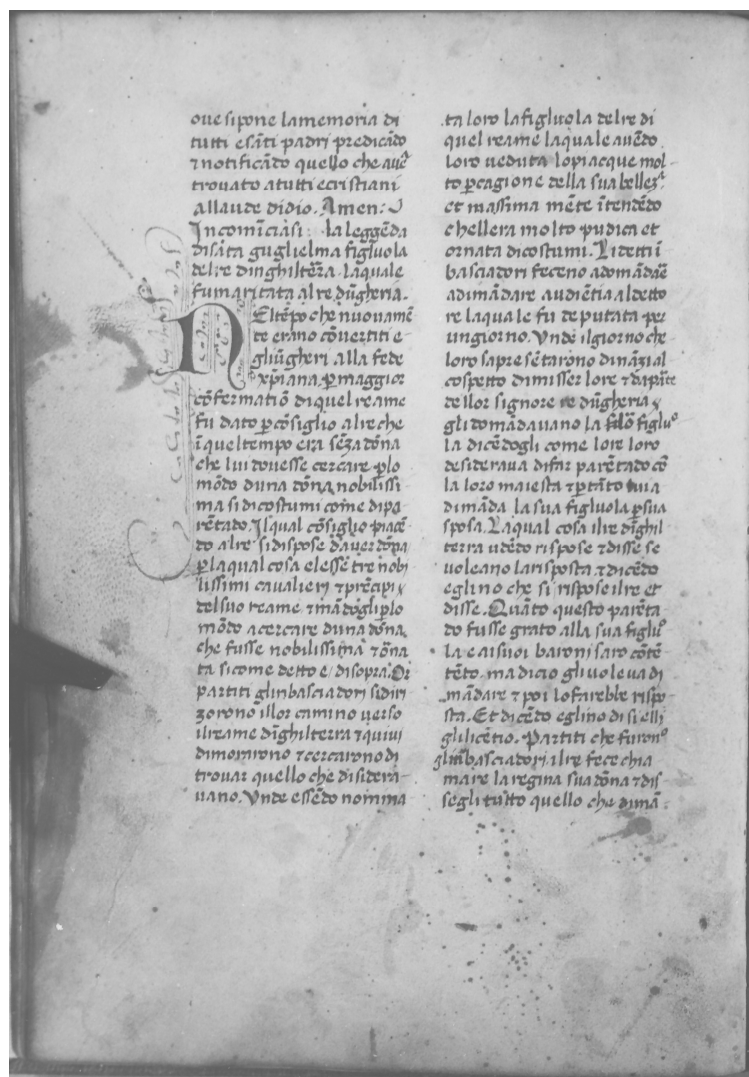 ove si pone la memoria di
tutti e sãti padri predicãdo
⁊ notificãdo quello che avẽ
trovato a tutti e cristiani
allaude didio. Amen:
Incomĩciasi: la leggẽda
disãta guglielma figluola
del re dinghiltẽra. laquale
fu maritata al re dũgheria.
NEl tẽpo che nuovamẽ
te erano cõvertiti e
gliũgheri alla fede
xp̃iana. ꝑ maggior
cõfermatiõ di quel reame
fu dato ꝑ cõsiglio al re che
ĩ quel tempo era sẽza dõna
che lui dovesse cercare ꝑ lo
mõdo duna dõna nobilissi
ma si di costumi come di pa
rẽtado. Il qual cõsiglio piacẽ
do al re si dispose daver dõna
ꝑ la qual cosa elesse tre nobi
lissimi cavalieri ⁊ prẽcipi
del suo reame ⁊ mãdogli ꝑ lo
mõdo a cercare duna dõna
che fusse nobilissima ⁊ õna
ta si come detto e disopra. Di
partiti gli inbasciadori si diri
zorono ĩ llor camino verso
il reame dĩghilterra ⁊ quivi
dimorarono ⁊ cercarono di
trovar quello che disidera-
vano. Unde essẽdo nomina
ta loro la figluola del re di
quel reame la quale avẽdo
loro veduta lo piacque mol-
to ꝑ cagione della sua bellez
et massima mẽte ĩtendẽdo
chellera molto pudica et
ornata di costumi. Li detti ĩ
basciadori feceno adomãdare
adimãdare audiẽtia al detto
re la quale fu deputata per
un giorno. Unde il giorno che
loro sapresẽtarono dinãzi al
cospetto di misser lo re ⁊ da parte
dellor signore re dũgheria
gli domãdavano la figluo
la dicẽdogli come lo re loro
desiderava di far parẽtado cõ
la loro maiesta ⁊ ꝑ tãto
dimãda la sua figluola ꝑ sua
sposa. La qual cosa il re dĩghil
terra udẽdo rispose ⁊ disse se
voleano la risposta. ⁊ dicẽdo
eglino che si rispose il re et
disse. Quãto questo parẽta
do fusse grato alla sua figluo
la e ai suoi baroni saro cõtẽ
tẽto. ma di cio gli voleva di
mãdare ⁊ poi lo farebbe rispo
sta. Et dicẽdo eglino di si elli
gli licẽtio. Partiti che furono
gli inbasciadori il re fece chia
mare la regina sua dõna ⁊ dis
segli tutto quello che dimã